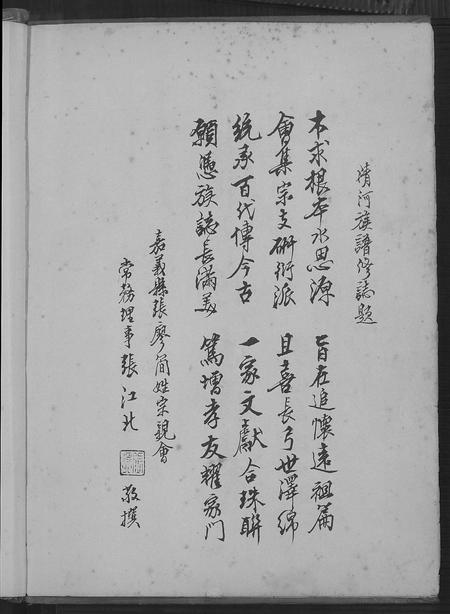 清河族譜修誌題
木求根本水思源　旨在追懷遠祖篇
會集宗支研衍派　且喜長弓世澤綿
統承百代傳今古　一家文獻合珠聯
願憑族誌長滿美　篤增孝友耀家門
嘉義縣張廖簡姓宗親會
常務理事張江北　敬撰